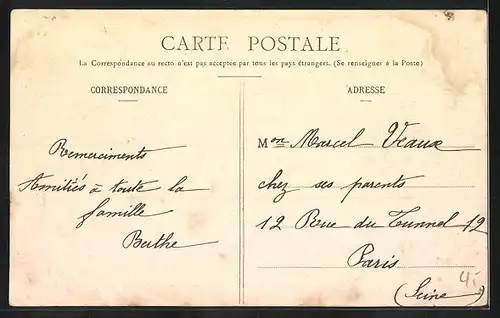 CARTE POSTALE
La Correspondance au recto n'est pas acceptée par tous les pays étrangers. (Se renseigner à la Poste)
CORRESPONDANCE
Remerciments
Amitiés à toute la
famille
Berthe
ADRESSE
Mon Marcel Veaux
chez ses parents
12 Rue du Tunnel 12
Paris
(Seine)
4.-